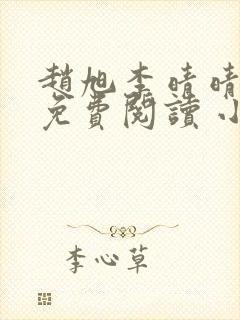 趙旭李晴晴
免費閱讀小
李心草